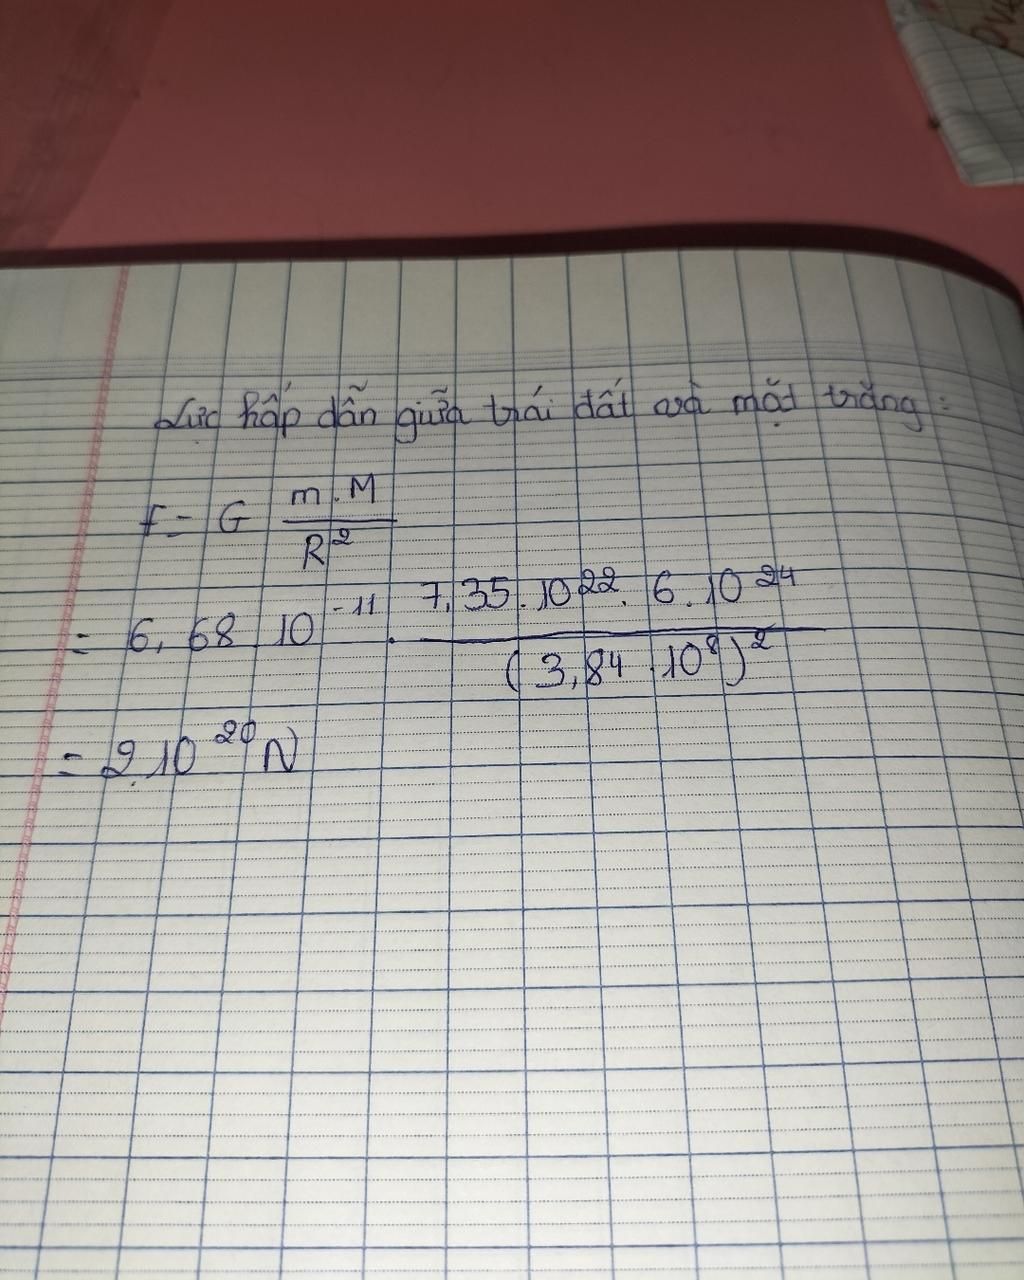 Lực hấp dẫn giữa trái đất và mặt trăng:
F = G m.M / R²
= 6,68.10⁻¹¹ . 7,35.10²². 6.10²⁴ / (3,84.10⁸)²
= 2.10²⁰ N